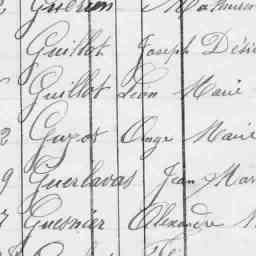 Guérin Mathurin
Guillot Joseph Dési
Guillot Léon Marie
2 Guyot Ange Marie
9 Guerlavas Jean Mar
7 Guesnier Alexandre M